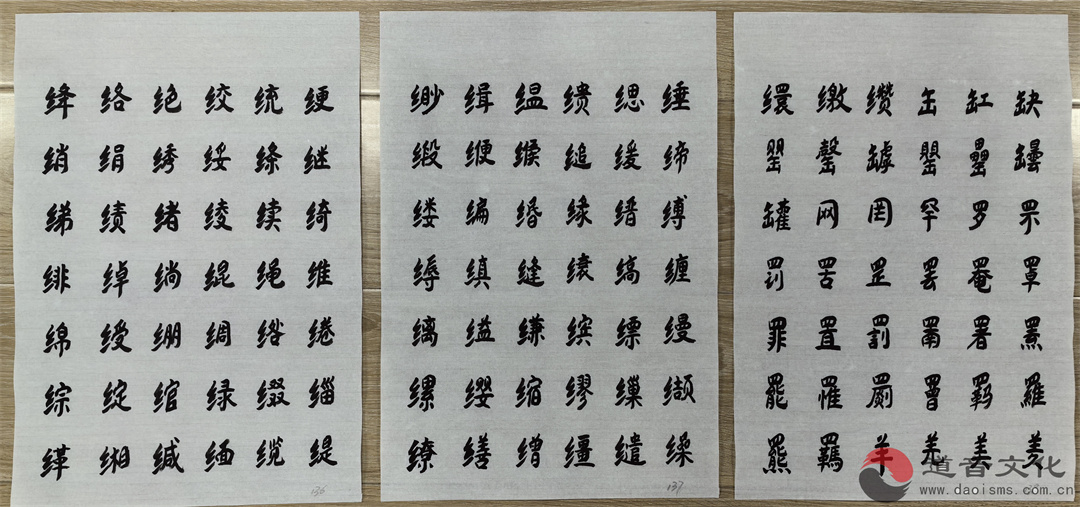 绛络绝绞统绠
绡绢绣绥绦继
绨绩绪绫续绮
绯绰绱绲绳维
绵绶绷绸绺绻
综绽绾绿缀缁
缂缃缄缅缆缇
136
缈缉缊缋缌缍
缎缏缑缒缓缔
缕编缗缘缙缚
缛缜缝缞缟缠
缡缢缣缤缥缦
缧缨缩缪缫缬
缭缮缯缰缱缲
137
缳缴缵缶缸缺
罂罄罅罌罍罎
罐网罔罕罗罘
罚罟罡罢罨罩
罪置罰罱署罴
罷罹罽罾羁羅
羆羈羊羌美羑
道音文化
www.daoisms.com.cn